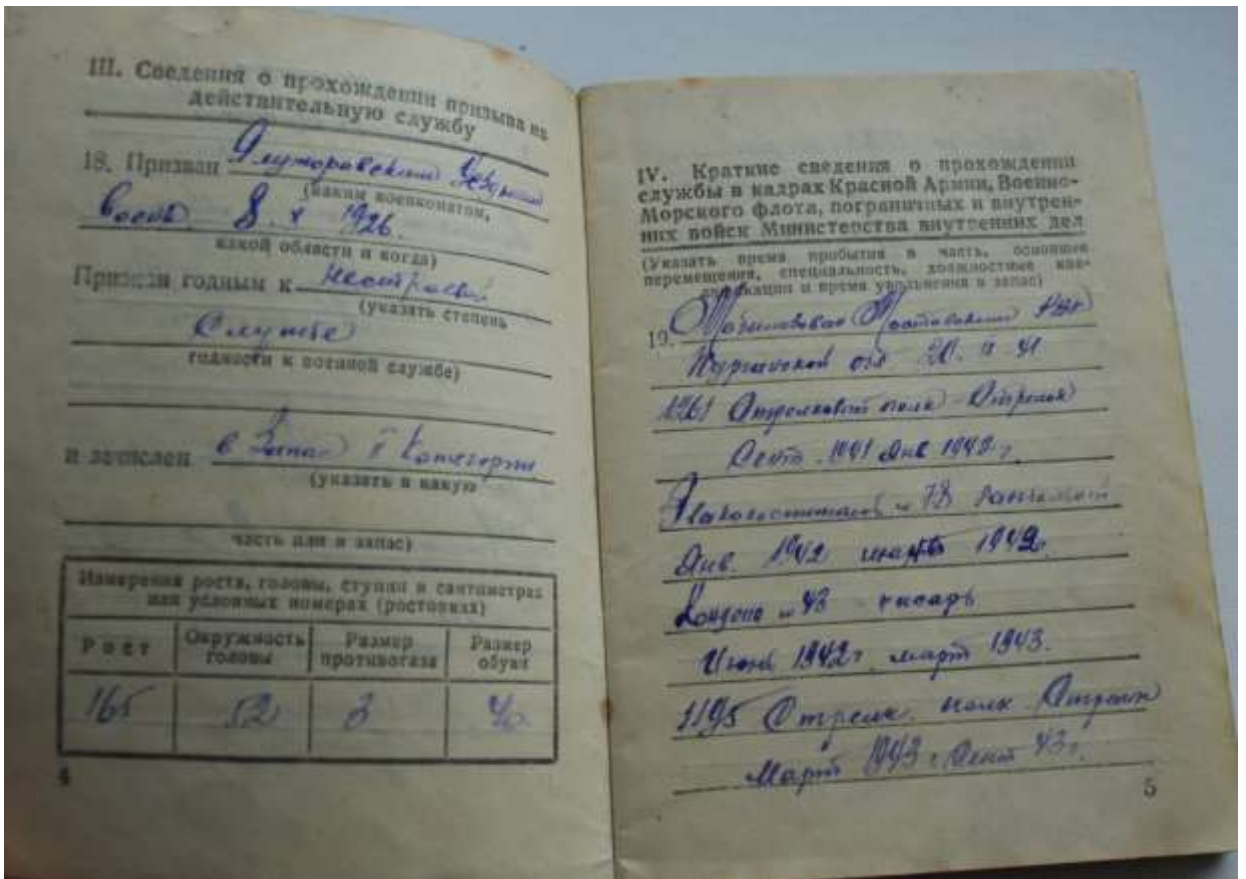 III. Сведения о прохождении призыва на
действительную службу
18. Призван Ялуторовским Уездным
(каким военкоматом,
Военк. 8. X 1926.
какой области и когда)
Признан годным к нестроевой
(указать степень
Службе
годности к военной службе)
и зачислен в Запас II Категории
(указать в какую
часть или в запас)
Измерения роста, головы, ступни в сантиметрах
или условных номерах (ростовках)
Рост
Окружность
головы
Размер
противогаза
Размер
обуви
165
52
3
40
4
IV. Краткие сведения о прохождении
службы в кадрах Красной Армии, Военно-
Морского флота, пограничных и внутрен-
них войск Министерства внутренних дел
(Указать время прибытия в часть, основные
перемещения, специальность, должностные ква-
лификации и время увольнения в запас)
19. Мобилизован Мостовским РВК
Курганской обл 20. 41
1261 Стрелковый полк - Стрелок
Сент. 1941 Янв 1942 г.
78
Янв. 1942 1942.
43 - писарь
Июнь 1942 г март 1943.
1195 Стрелк. полк Стрелок
Март 1943 г Сент 43 г.
5